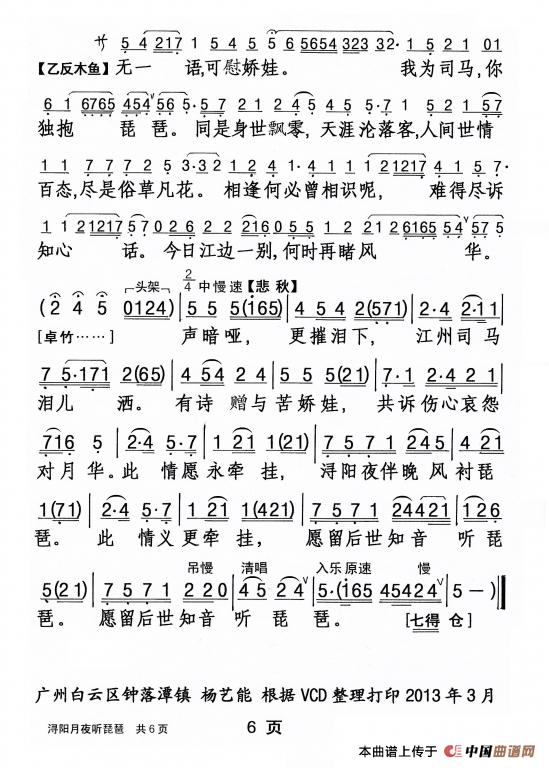 サ 5 4 217 1 5 4 5 5 6 5654 323 32· 1 5 2 1 01
【乙反木鱼】无一 语,可慰娇娃。 我为司马,你
6 1 6765 454 ˅ 56 5·5 7 21 2 4 5 4 5 1 2 5 2 1 57
独抱 琵琶。同是身世飘零,天涯沦落客,人间世情
1 1 7 7 7 2 5 3·3 2 1 2 4 1·4 1 1 21217 1 4 1 5 7·
百态,尽是俗草凡花。 相逢何必曾相识呢, 难得尽诉
1 1 21217 57 0 2 6 2 2 216 0 5 5 1 2 2 1 2 6165 54 ˅ 57 5
知心 话。今日江边一别,何时再睹风 华。
┌头架┐ 2/4 中慢速【悲秋】
(2 4 5 0124) 5 5 5(165) 4 5 4 2(571) 2·4 2·11
[卓竹……] 声暗哑, 更摧泪下, 江州司马
7 5·171 2(65) 4 54 24 5 5(21) 7·1 2·4 2 1
泪儿 洒。有诗赠与苦娇娃, 共诉伤心哀怨
716 5 2·4 5·7 1 21 1(21) 7 5 7 1 245 4·5
对月华。此 情愿永牵挂, 浔阳夜伴晚风衬琵
1(71) 2·4 5·7 1 21 1(421) 7 5 7 1 24421 126
琶。 此 情义更牵挂, 愿留后世知音 听琵
吊慢 清唱 入乐原速 慢
5(21) 7 5 7 1 2 2 0 45 24 ˅ 5·(165 45424 ˅ 5 -)
琶。 愿留后世知音 听琵 琶。 [七得 仓]
广州白云区钟落潭镇 杨艺能 根据VCD整理打印2013年3月
浔阳月夜听琵琶 共6页 6 页
本曲谱上传于 中国曲谱网